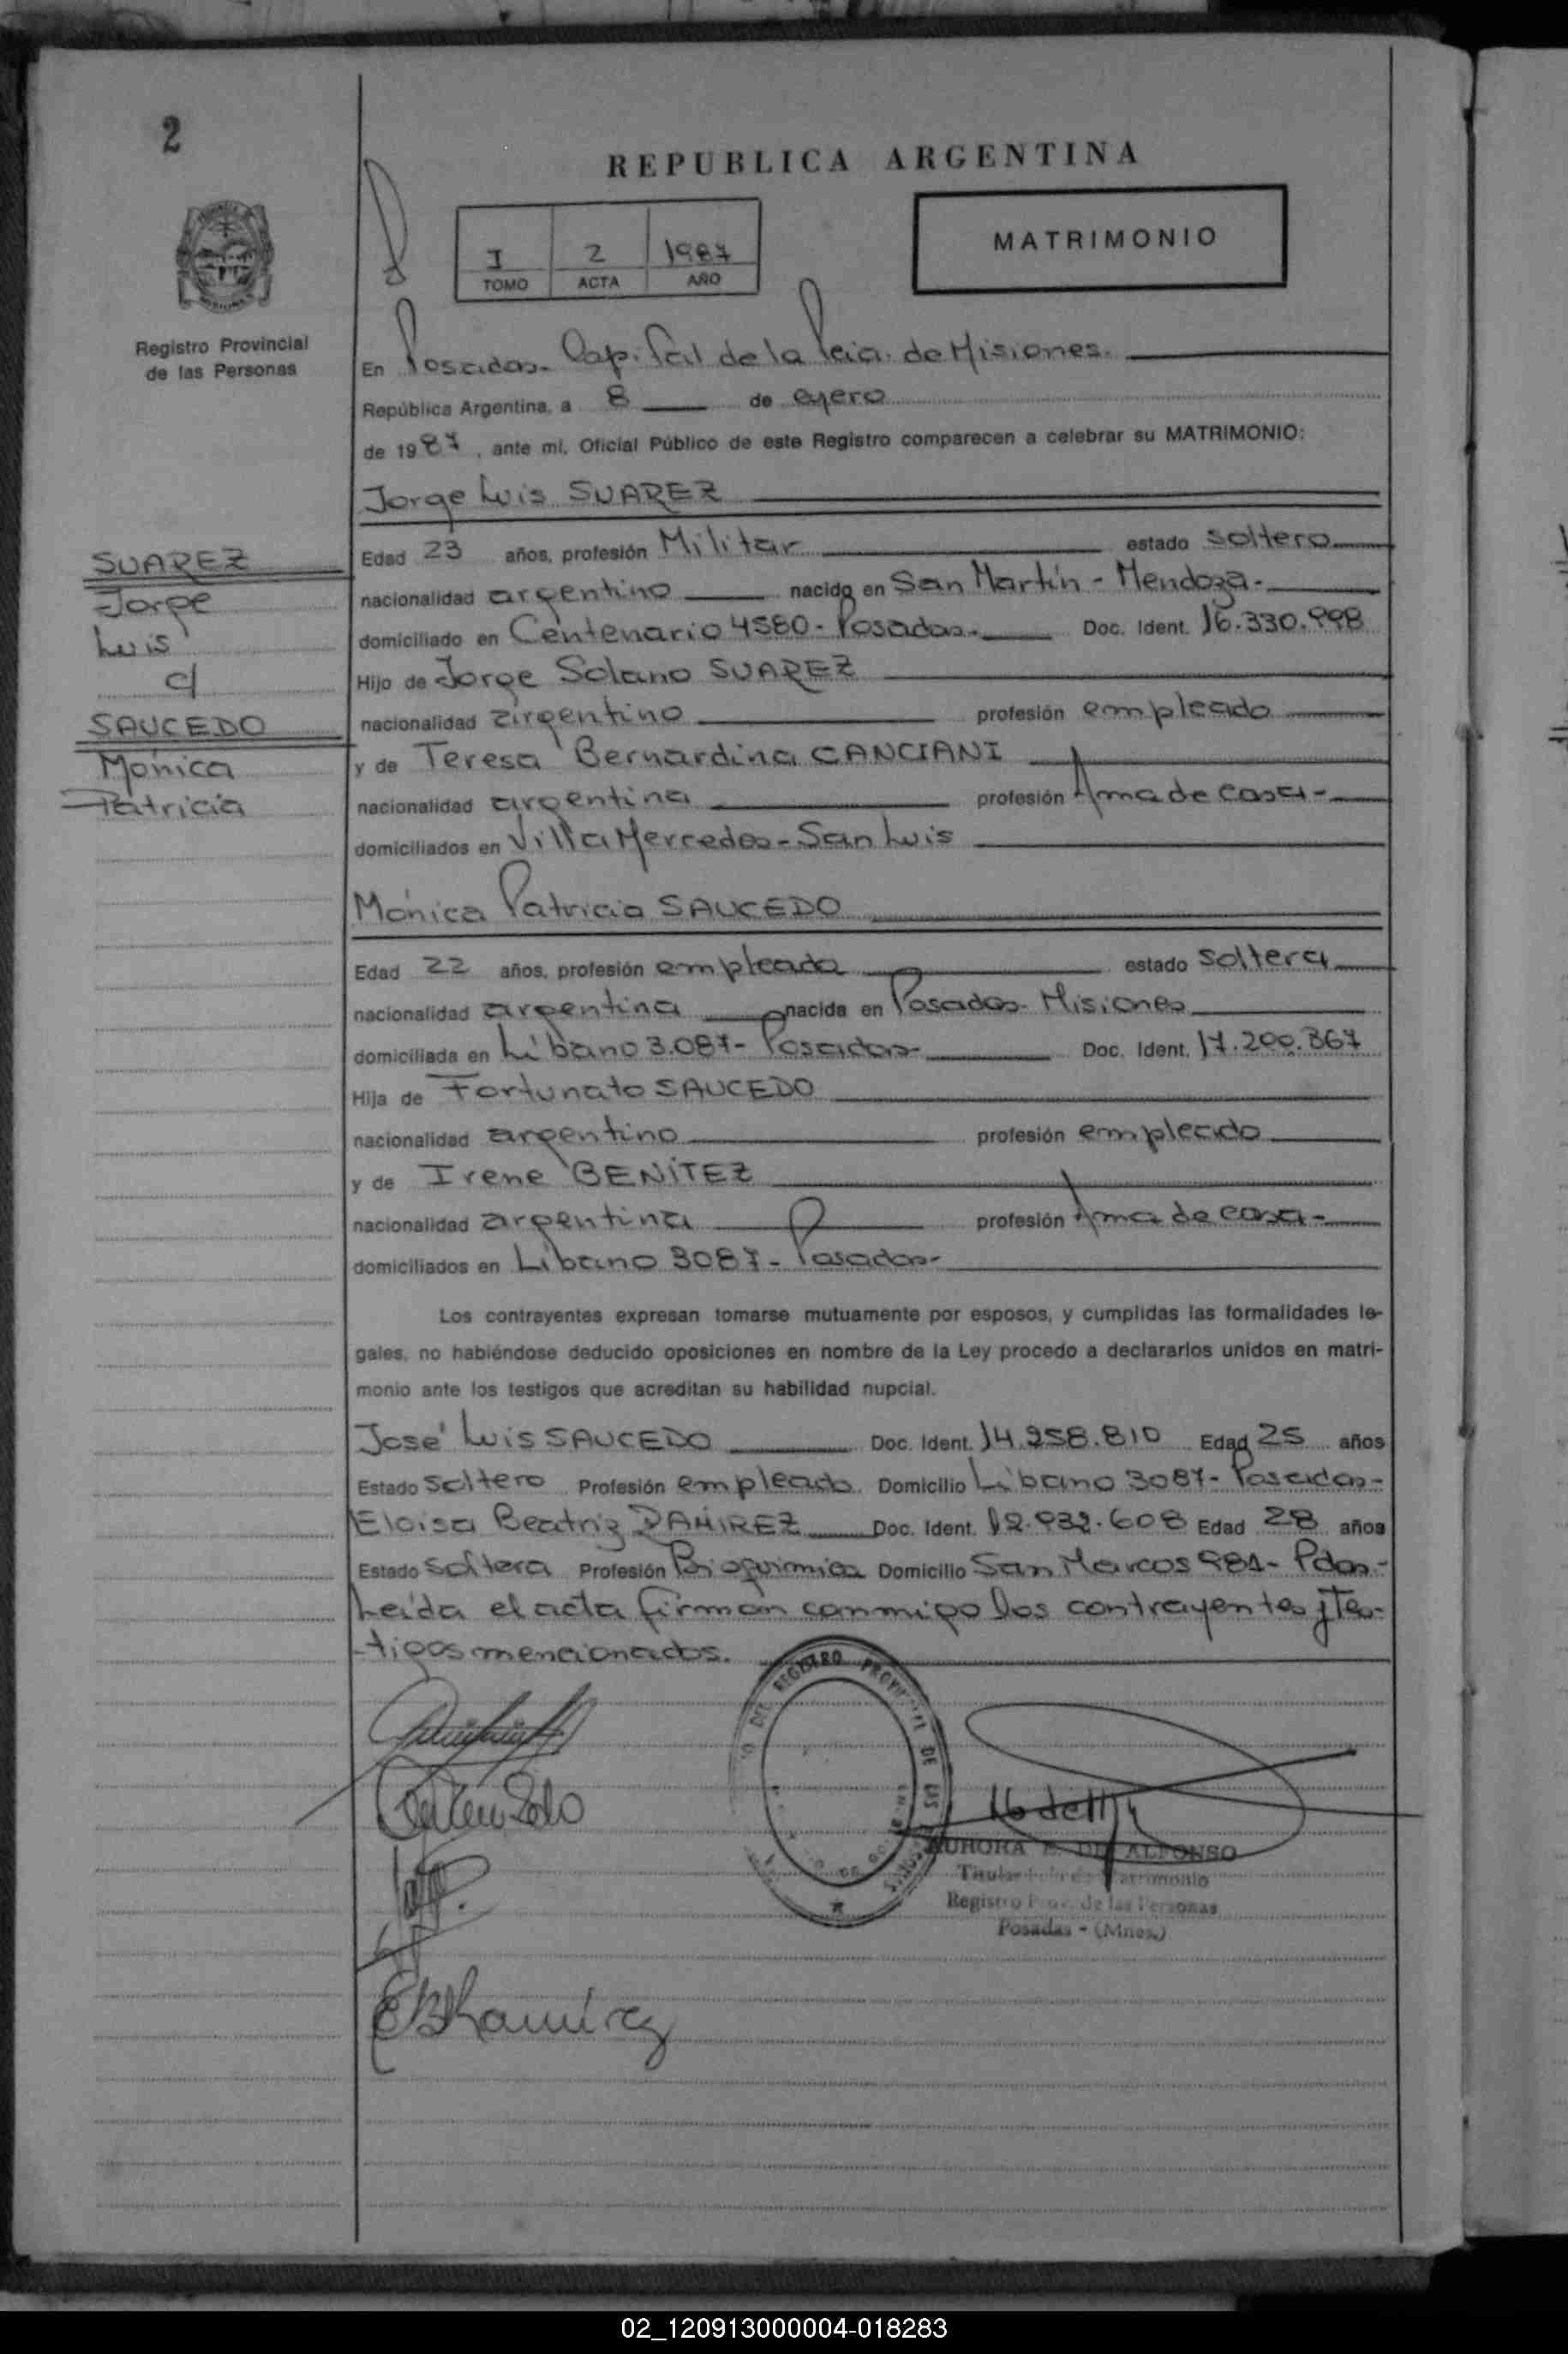 2
REPUBLICA ARGENTINA
I 2 1987
TOMO ACTA AÑO
MATRIMONIO
Registro Provincial
de las Personas
SUAREZ
Jorge
Luis
c/
SAUCEDO
Mónica
Patricia
En Posadas- Capital de la Pcia. de Misiones.
República Argentina, a 8 de enero
de 1987, ante mi, Oficial Público de este Registro comparecen a celebrar su MATRIMONIO:
Jorge Luis SUAREZ
Edad 23 años, profesión Militar estado soltero
nacionalidad argentino nacido en San Martín - Mendoza-
domiciliado en Centenario 4580- Posadas- Doc. Ident. 16.330.998
Hijo de Jorge Solano SUAREZ
nacionalidad argentino profesión empleado
y de Teresa Bernardina CANCIANI
nacionalidad argentina profesión Ama de casa-
domiciliados en Villa Mercedes- San Luis
Mónica Patricia SAUCEDO
Edad 22 años, profesión empleada estado soltera
nacionalidad argentina nacida en Posadas- Misiones
domiciliada en Líbano 3.087- Posadas- Doc. Ident. 17.200.367
Hija de Fortunato SAUCEDO
nacionalidad argentino profesión empleado
y de Irene BENÍTEZ
nacionalidad argentina profesión Ama de casa-
domiciliados en Líbano 3087- Posadas-
Los contrayentes expresan tomarse mutuamente por esposos, y cumplidas las formalidades le-
gales, no habiéndose deducido oposiciones en nombre de la Ley procedo a declararlos unidos en matri-
monio ante los testigos que acreditan su habilidad nupcial.
José Luis SAUCEDO Doc. Ident. 14.258.810 Edad 25 años
Estado soltero Profesión empleado Domicilio Líbano 3087- Posadas-
Eloisa Beatriz RAMIREZ Doc. Ident. 12.932.608 Edad 28 años
Estado soltera Profesión Bioquímica Domicilio San Marcos 981- Pdas.-
Leída el acta firman conmigo los contrayentes y Tes-
-tigos mencionados.
REGISTRO PROVINCIAL DE LAS
AURORA E. DE ALFONSO
Titular Matrimonio
Registro Prov. de las Personas
Posadas - (Mnes.)
EBRamírez
02_120913000004-018283